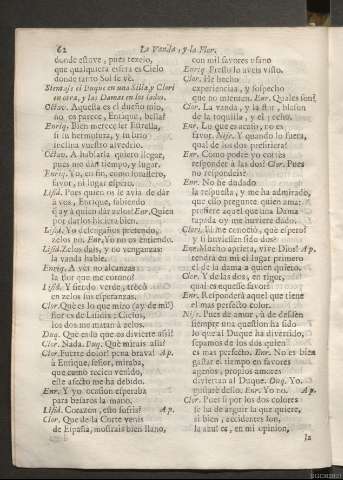 62 La Vanda, y la Flor.
donde estuve, pues
que qualquiera esfera es Cielo
donde tanto Sol se vè.
Sientase el Duque en una Silla, y Clori
en otra, y las Damas en los lados.
Octav. Aquella es el dueño mio,
no os parece, Enrique, bella?
Enriq. Bien merece ser Estrella,
si su hermosura, y su brio
inclina vuestro alvedrio.
Octav. A hablarla quiero llegar,
pues me dan tiempo, y lugar.
Enriq. Yo, en fin, como forastero,
favor, ni lugar espero.
Lisid. Pues quien os le avia de dàr
à vos, Enrique, sabiendo
q̃ ay à quien dàr zelos? Enr. Quien
por darlos hiciera bien.
Lisid. Yo desengaños pretendo,
zelos no. Enr. Yo no os entiendo.
Lisid. Zelos dais, y no venganzas:
la vanda hable.
Enriq. A vos no alcanzas
la flor que me contano!
Lisid. Y siendo verde, trocò
en zelos las esperanzas.
Clor. Què es lo que miro (ay de mi!)
flor es de Lisida; Cielos,
los dos me matan à zelos.
Duq. Què es lo que os divierte assi?
Clor. Nada. Duq. Què mirais assi?
Clor. Fuerte dolor! pena brava! Ap.
à Enrique, señor, miraba,
que como recien venido,
este afecto me ha debido.
Enr. Y yo ocasion esperaba
para besaros la mano.
Lisid. Corazon, esto sufris? Ap.
Clor. Que de la Corte venis
de España, mostrais bien llano,
con mil favores ufano
Enriq. Presto lo aveis visto.
Clor. He hecho
experiencias, y sospecho
que no mienten. Enr. Quales son?
Clor. La vanda, y la flor, blason
de la toquilla, y el pecho.
Enr. Lo que es acaso, no es
favor. Nise. Y quando lo fuera,
qual de los dos prefiriera?
Enr. Como podrè yo cortès
responder à las dos? Clor. Pues
no respondeis?
Enr. No he dudado
la respuesta, y me ha admirado,
que esso pregunte quien ama:
prefiere aquel que una Dama
tapada oy me huviere dado.
Clori. Assi me conociò, què espero?
y si huvieran sido dos?
Enr. Mucho aprieta, vive Dios! Ap.
tendra en mi el lugar primero
el de la dama à quien quiero.
Clor. Y de las dos, en rigor,
qual es quiesse favor?
Enr. Responderà aquel que tiene
el mas perfecto color.
Nise. Pues de amor, ù de desdèn
siempre una question ha sido
lo que al Duque ha divertido,
sepamos de los dos quien
es mas perfecto. Enr. No es bien
gastar el tiempo en favores
agenos, propios amores
diviertan al Duque. Duq. Yo
gustarè dello. Enr. Yo no. Ap.
Clor. Pues si por los dos colores
se ha de arguir la que quiere,
si bien, accidentes son,
la azul es, en mi opinion,
la